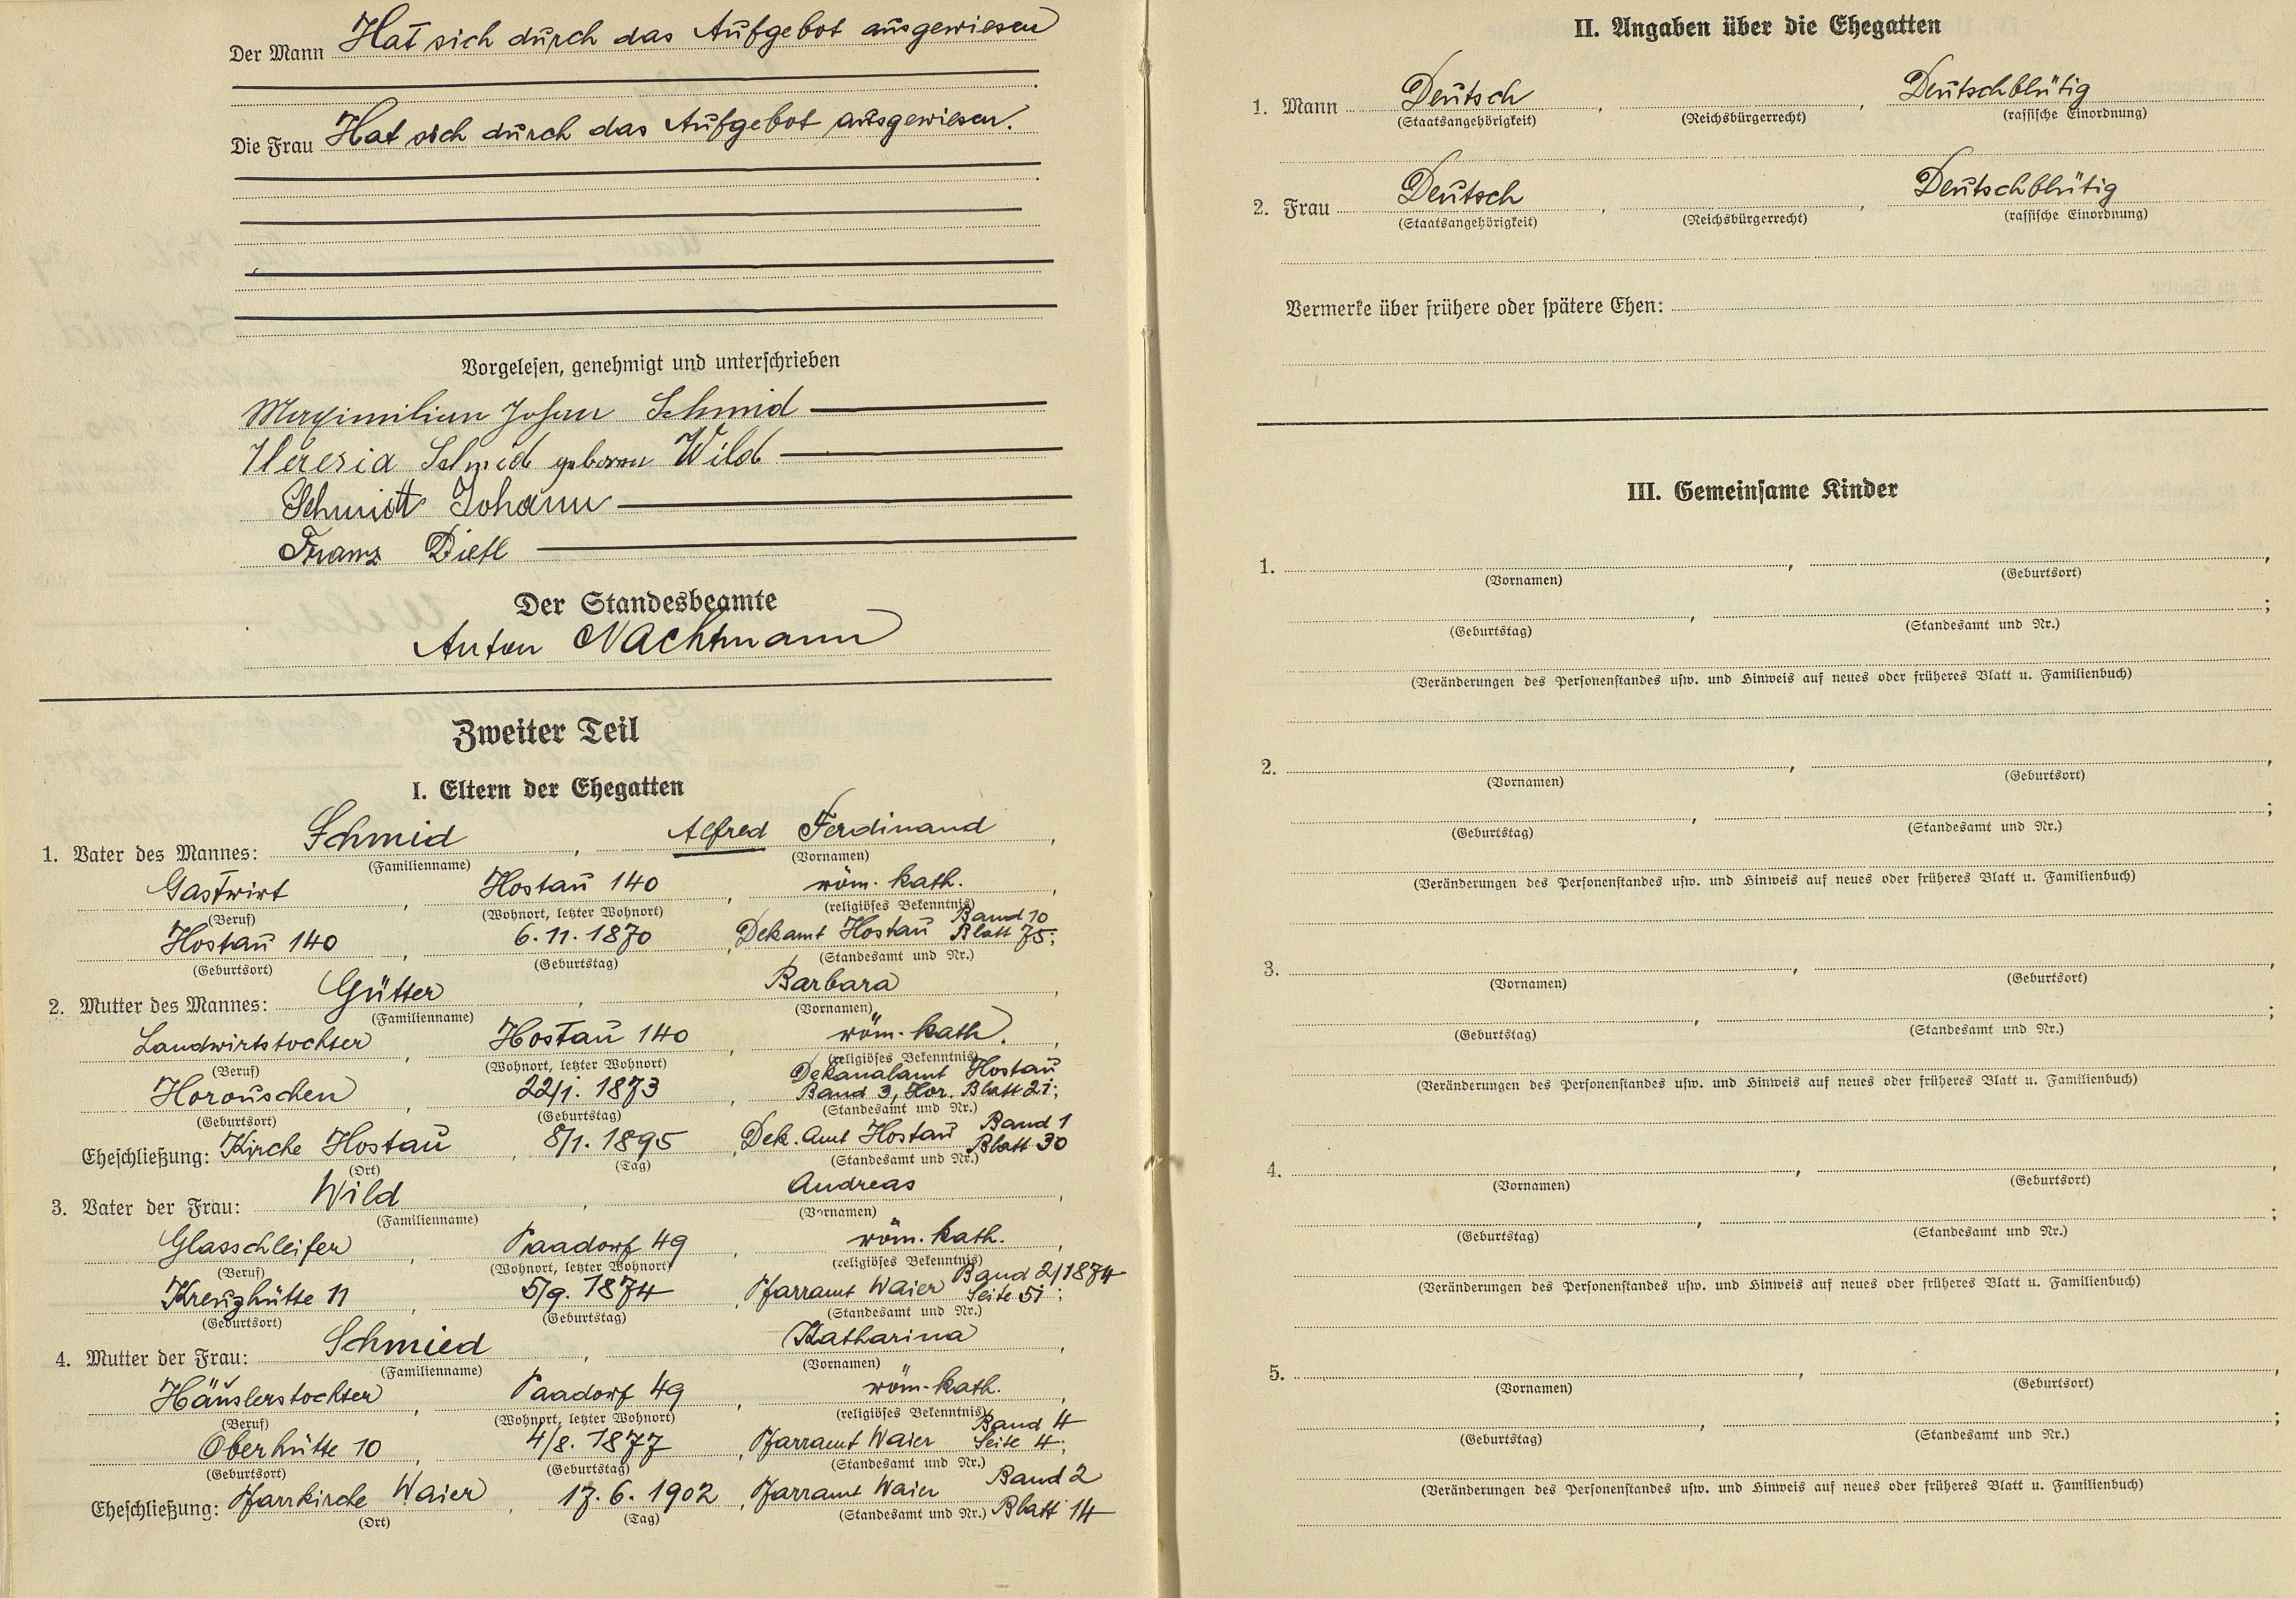 Der Mann Hat sich durch das Aufgebot ausgewiesen
Die Frau Hat sich durch das Aufgebot ausgewiesen.
Vorgelesen, genehmigt und unterschrieben
Maximilian Johann Schmid
Theresia Schmid geboren Wild
Schmidt Johann
Franz Dietl
Der Standesbeamte
Anton Nachtmann
Zweiter Teil
I. Eltern der Ehegatten
1. Vater des Mannes: Schmid, Alfred Ferdinand,
(Familienname) (Vornamen)
Gastwirt, Hostau 140, röm. kath.,
(Beruf) (Wohnort, letzter Wohnort) (religiöses Bekenntnis)
Hostau 140, 6.11.1870, Dekamt Hostau Band 10 Blatt 75;
(Geburtsort) (Geburtstag) (Standesamt und Nr.)
2. Mutter des Mannes: Gütter, Barbara,
(Familienname) (Vornamen)
Landwirtstochter, Hostau 140, röm. kath.,
(Beruf) (Wohnort, letzter Wohnort) (religiöses Bekenntnis)
Horouschen, 22/1. 1873, Dekanalamt Hostau Band 3, Hor. Blatt 21;
(Geburtsort) (Geburtstag) (Standesamt und Nr.)
Eheschließung: Kirche Hostau, 8/1. 1895, Dek. Amt Hostau Band 1 Blatt 30
(Ort) (Tag) (Standesamt und Nr.)
3. Vater der Frau: Wild, Andreas,
(Familienname) (Vornamen)
Glasschleifer, Paadorf 49, röm. kath.,
(Beruf) (Wohnort, letzter Wohnort) (religiöses Bekenntnis)
Kreuzhütte 11, 5/9. 1874, Pfarramt Waier Band 2/1874 Seite 51;
(Geburtsort) (Geburtstag) (Standesamt und Nr.)
4. Mutter der Frau: Schmied, Katharina,
(Familienname) (Vornamen)
Häuslerstochter, Paadorf 49, röm. kath.,
(Beruf) (Wohnort, letzter Wohnort) (religiöses Bekenntnis)
Oberhütte 10, 4/8. 1877, Pfarramt Waier Band 4 Seite 4;
(Geburtsort) (Geburtstag) (Standesamt und Nr.)
Eheschließung: Pfarrkirche Waier, 17.6.1902, Pfarramt Waier Band 2 Blatt 14
(Ort) (Tag) (Standesamt und Nr.)
II. Angaben über die Ehegatten
1. Mann Deutsch, , Deutschblütig
(Staatsangehörigkeit) (Reichsbürgerrecht) (rassische Einordnung)
2. Frau Deutsch, , Deutschblütig
(Staatsangehörigkeit) (Reichsbürgerrecht) (rassische Einordnung)
Vermerke über frühere oder spätere Ehen:
III. Gemeinsame Kinder
1. , ,
(Vornamen) (Geburtsort)
, ;
(Geburtstag) (Standesamt und Nr.)
(Veränderungen des Personenstandes usw. und Hinweis auf neues oder früheres Blatt u. Familienbuch)
2. , ,
(Vornamen) (Geburtsort)
, ;
(Geburtstag) (Standesamt und Nr.)
(Veränderungen des Personenstandes usw. und Hinweis auf neues oder früheres Blatt u. Familienbuch)
3. , ,
(Vornamen) (Geburtsort)
, ;
(Geburtstag) (Standesamt und Nr.)
(Veränderungen des Personenstandes usw. und Hinweis auf neues oder früheres Blatt u. Familienbuch)
4. , ,
(Vornamen) (Geburtsort)
, ;
(Geburtstag) (Standesamt und Nr.)
(Veränderungen des Personenstandes usw. und Hinweis auf neues oder früheres Blatt u. Familienbuch)
5. , ,
(Vornamen) (Geburtsort)
, ;
(Geburtstag) (Standesamt und Nr.)
(Veränderungen des Personenstandes usw. und Hinweis auf neues oder früheres Blatt u. Familienbuch)